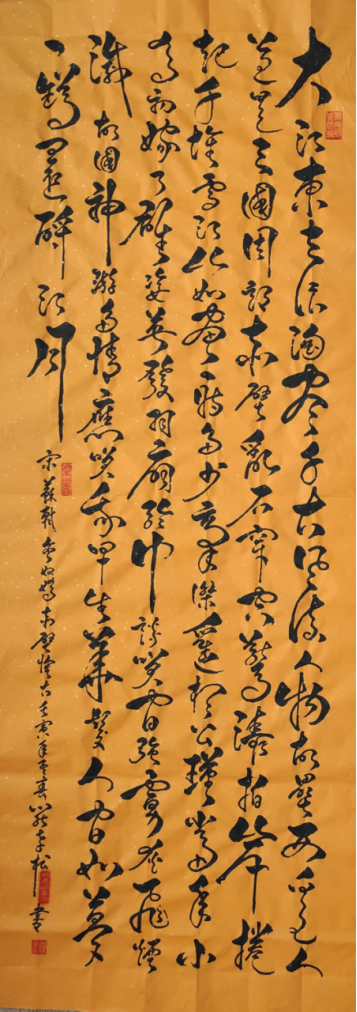 大江东去浪淘尽千古风流人物故垒西边人
道是三国周郎赤壁乱石穿空惊涛拍岸捲
起千堆雪江山如画一时多少豪杰遥想公瑾当年小
乔初嫁了雄姿英发羽扇纶巾谈笑间强虏灰飞烟
灭故国神游多情应笑我早生华髮人间如梦
一樽还酹江月
宋苏轼念奴娇赤壁怀古壬寅年
松书